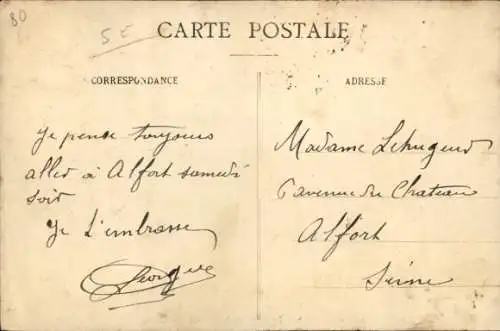 80
5 E
CARTE POSTALE
CORRESPONDANCE
ADRESSE
Je pense toujours
aller à Alfort samedi
soir
Je t'embrasse
Georges
Madame Lehugeur
6 avenue du Chateau
Alfort
Seine